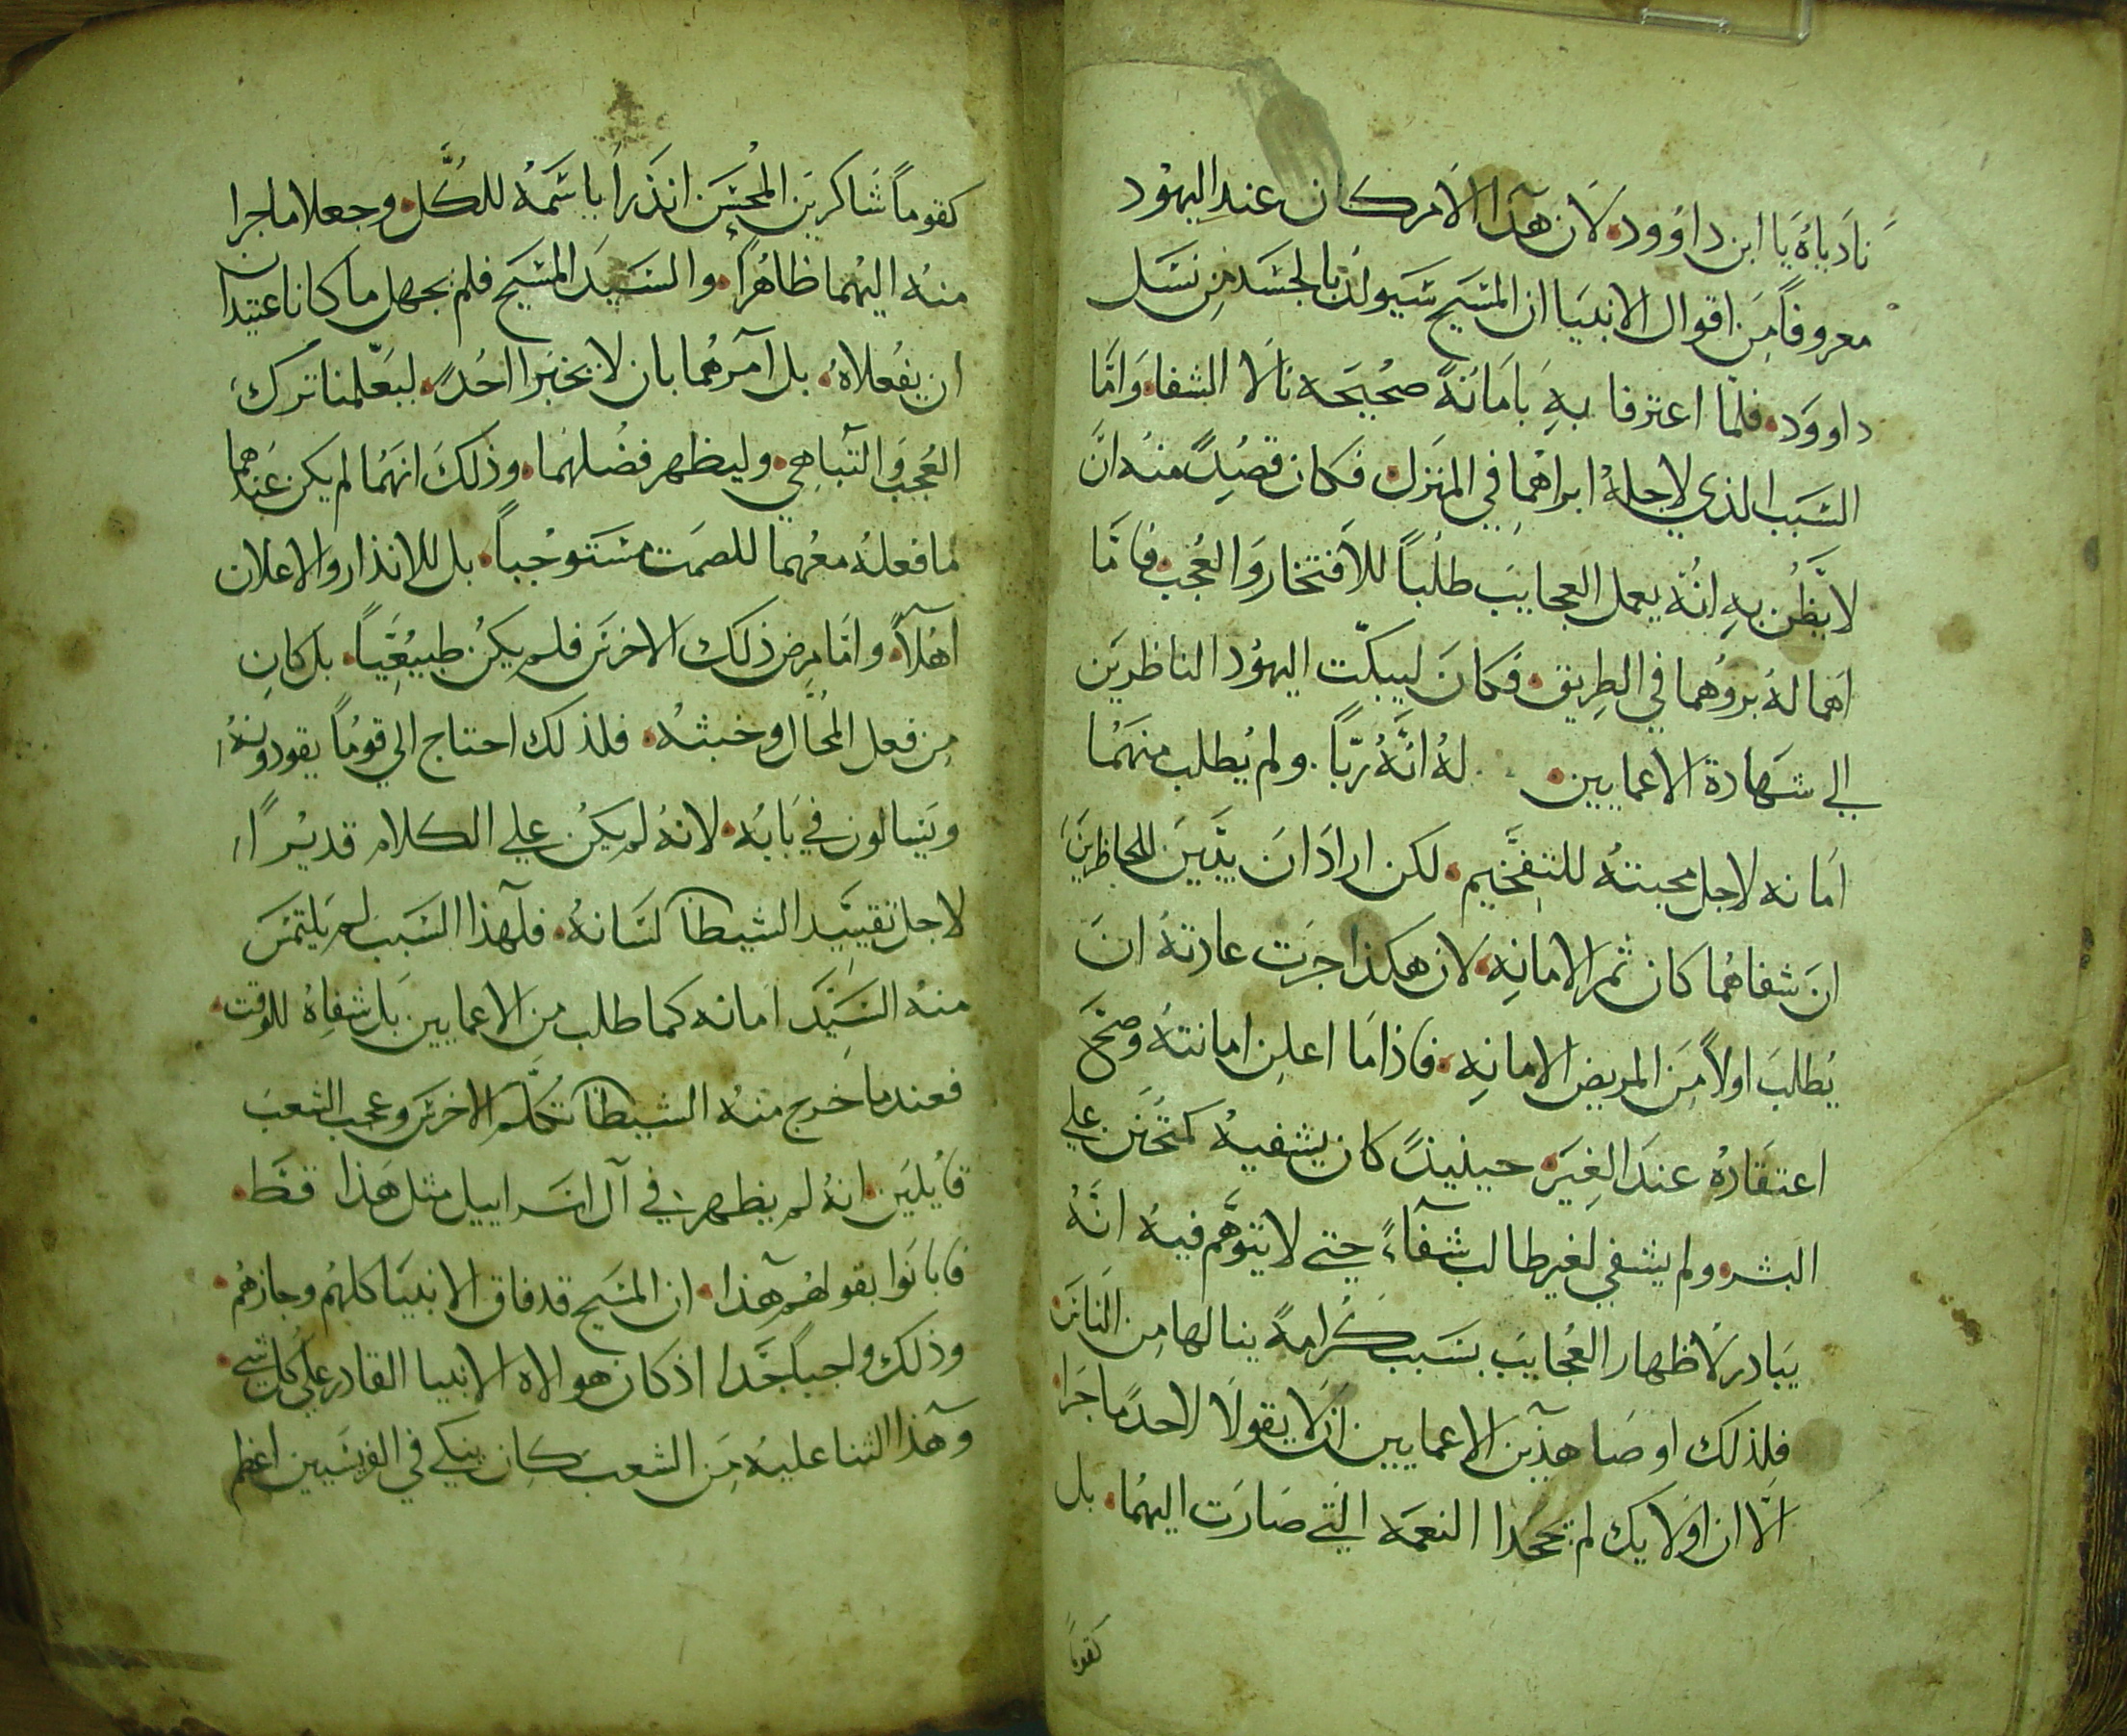 نادياهُ يا ابن داوود لان هذا الامر كان عند اليهود
معروفاً من اقوال الانبيا ان المسيح سيولد بالجسد من نسل
داوود فلما اعترفا به بامانة صحيحه نالا الشفا واما
السبب الذي لاجله ابراهما في المنزل فكان قصدً منه ان
لا يظن به انه يعمل العجايب طلباً للافتخار والعجب فاما
اهماله بروهما في الطريق فكان ليبكت اليهود الناظرين
الي شهادة الاعمايين له انه رباً. ولم يطلب منهما
امانه لاجل محبته للتفخيم لكن اراد ان يبين للحاظرين
ان شفاهما كان ثمر الامانه لان هكذا جرت عادته ان
يطلب اولاً من المريض الامانه فاذا ما اعلن امانته وصحح
اعتقاده عند الغير حينيذً كان يشفيه كمتحنن علي
البشر ولم يشفي لغير طالب شفآءً حتي لا يتوهم فيه انه
يبادر لاظهار العجايب بسبب كرامة ينالها من الناس
فلذلك اوصا هذين الاعمايين ان لا يقولا لاحد ما جرا
الا ان اولايك لم يجحدا النعمه التي صارت اليهما بل
كقوماً
كقوماً شاكرين المحسن انذرا باسمه للكل وجعلا ما جرا
منه اليهما ظاهراً والسيد المسيح فلم يجهل ما كانا عتيدان
ان يفعلاه بل آمرهما بان لا يخبرا احد ليعلمنا ترك
العجب والتباهي وليظهر فضلهما وذلك انهما لم يكن عندهما
ما فعله معهما للصمت مستوجباً بل للانذار والاعلان
اهلاً واما مرض ذلك الاخرس فلم يكن طبيعياً بل كان
من فعل المحال وخبثه فلذلك احتاج الي قوماً يقودونه
ويسالون في بابه لانه لم يكن علي الكلام قديراً
لاجل تقييد الشيطان لسانه فلهذا السبب لم يلتمس
منه السيد امانه كما طلب من الاعمايين بل شفاه للوقت
فعندما خرج منه الشيطان تكلم الاخرس وعجب الشعب
قايلين انه لم يظهر في آل اسراييل مثل هذا قط
فابانوا بقولهم هذا ان المسيح قد فاق الانبيا كلهم وجازهم
وذلك واجباً جدا اذ كان هو الاه الانبيا القادر علي كل شي
وهذا الثنا عليه من الشعب كان ينكي في الفريسيين اعظم